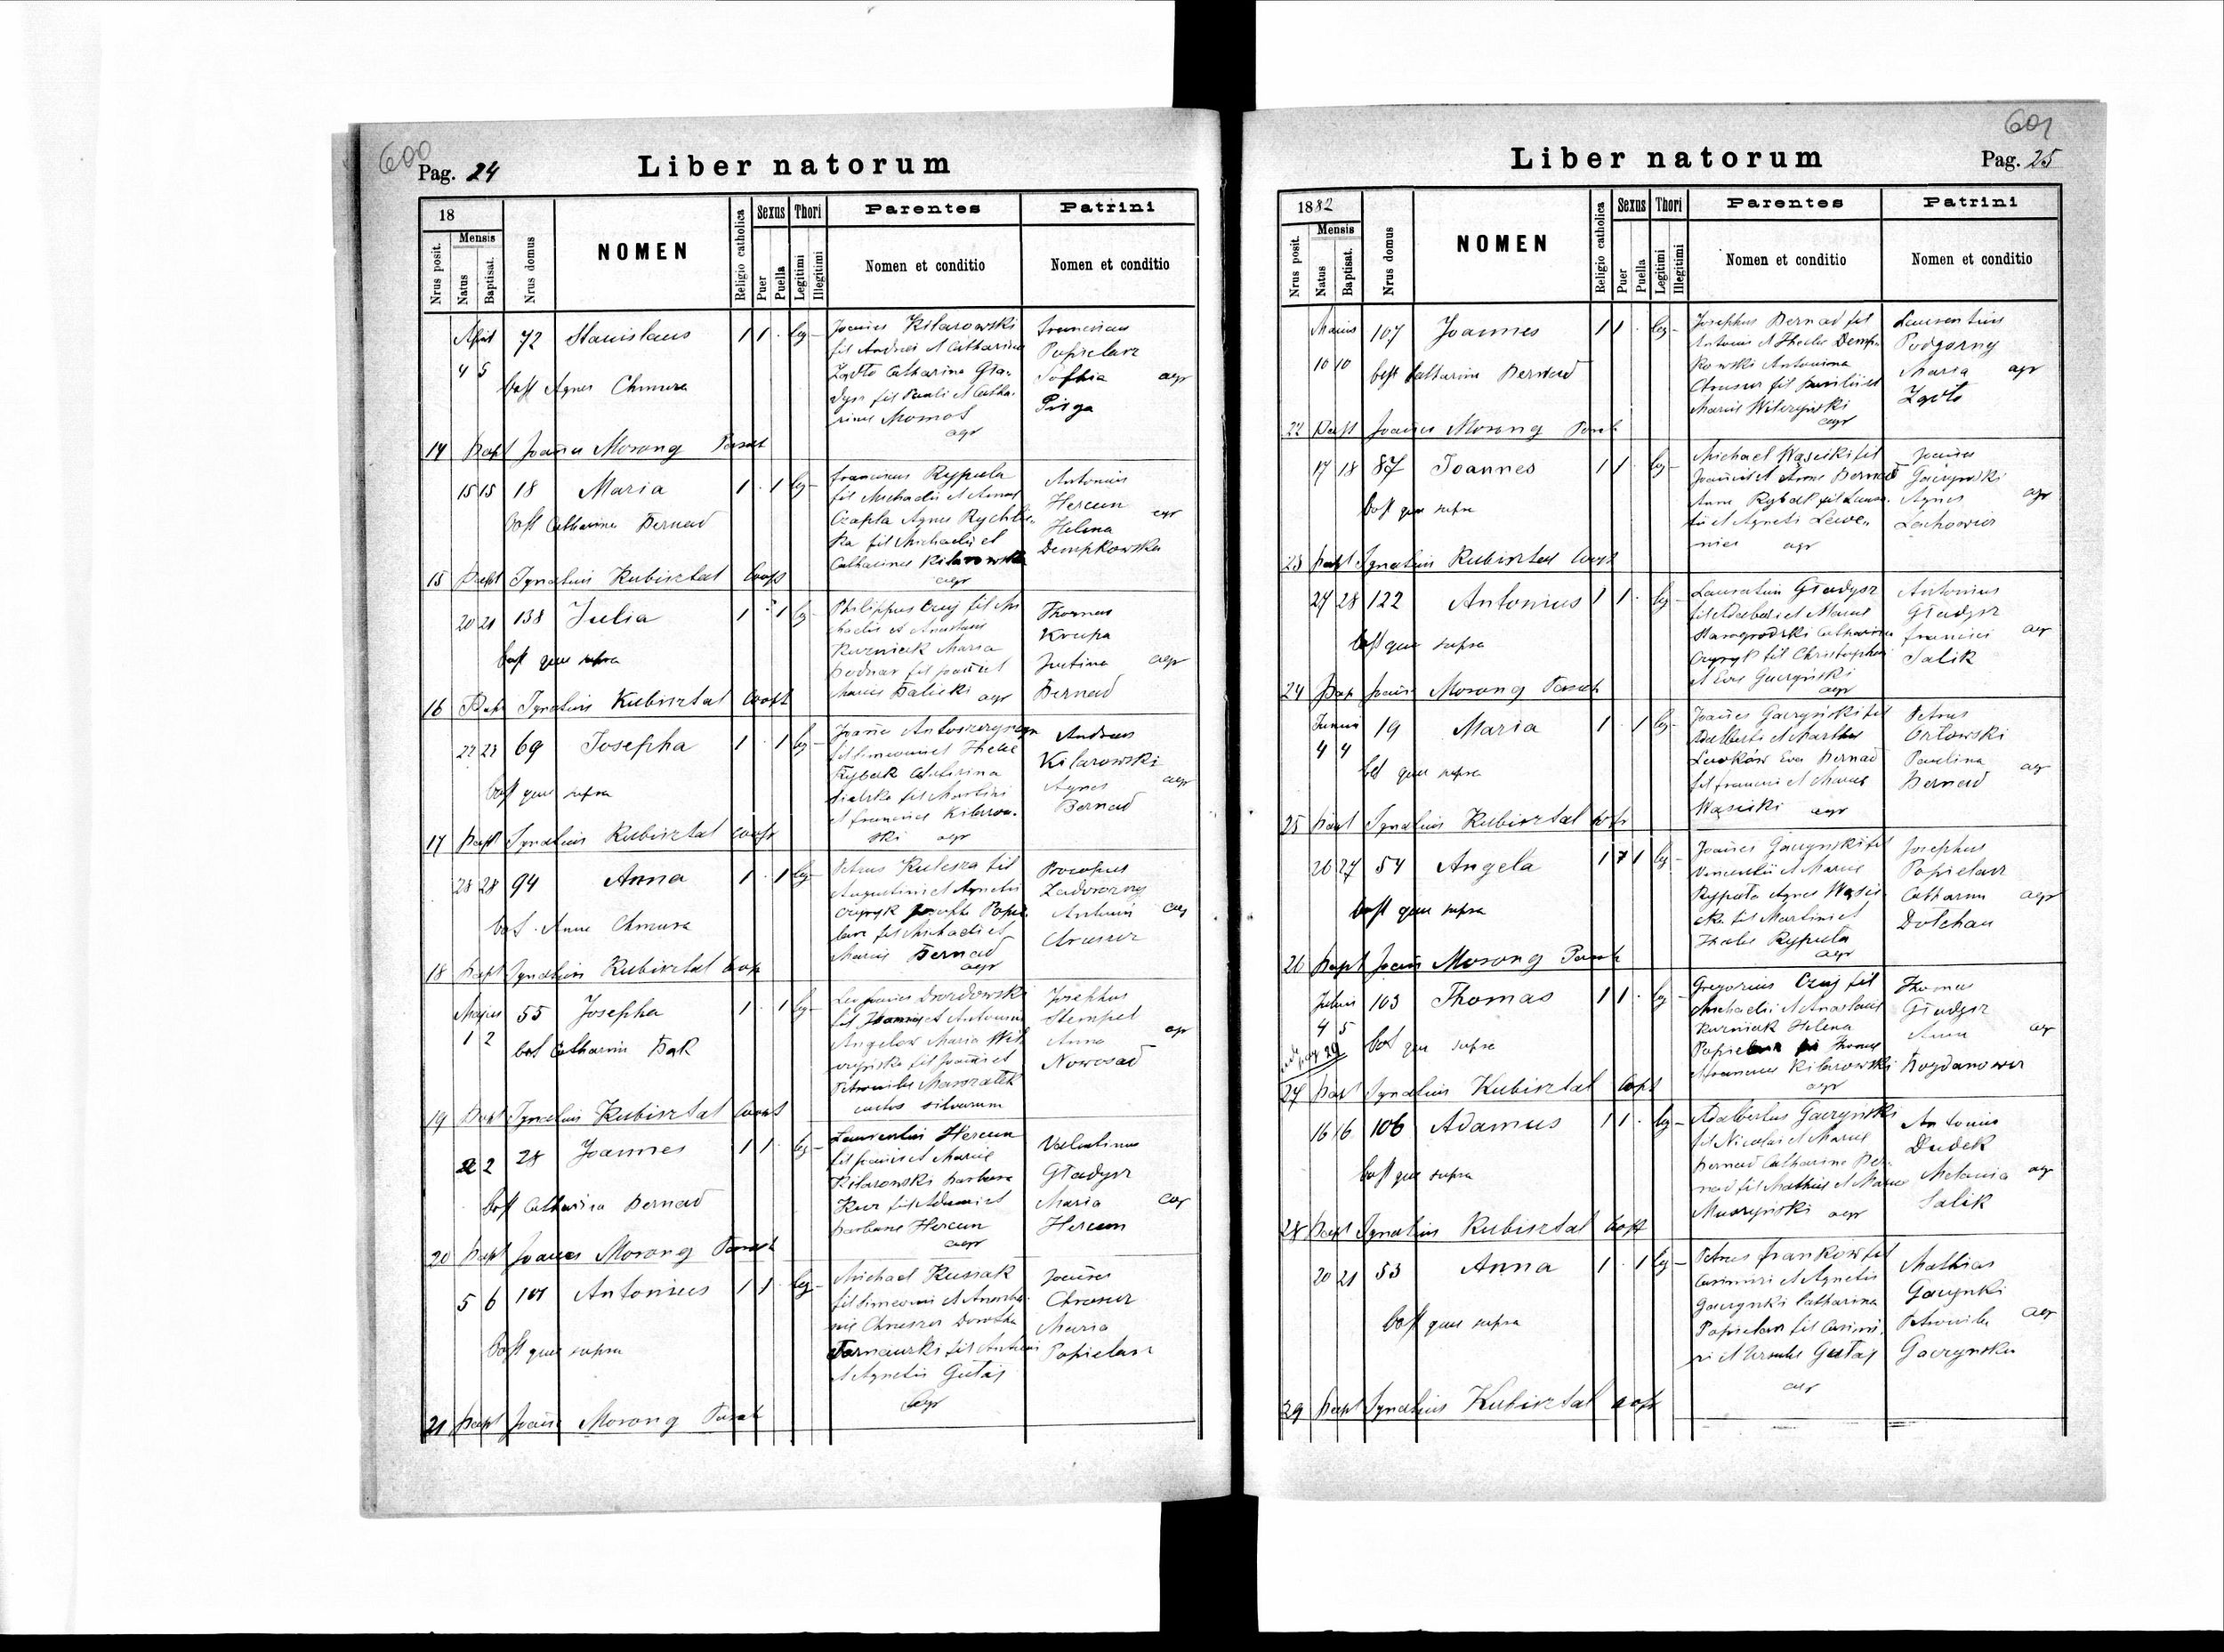 600
Pag. 24
Liber natorum
18
Nrus posit.
Mensis
Natus
Baptisat.
Nrus domus
NOMEN
Religio catholica
Sexus
Puer
Puella
Thori
Legitimi
Illegitimi
Parentes
Nomen et conditio
Patrini
Nomen et conditio
April 72 Stanislaus 1 1 leg
4 5
Agnes Chmura
Joannes Kilarowski
fil Andrei et Catharina
Catharina Gła-
dysz fil Pauli et Catha-
rina Momot
agr
Franciscus
Popielarz
Sophia agr
Pizga
14 Bapt Joannes Morong Paroch
15 15 18 Maria 1 1 leg
Catharina Bernad
Franciscus Rypula
fil Michaelis et Anna
Czapla Agnes Rychli-
ka fil Michaelis et
Catharina Kilarowska
agr
Antonius
Hercun agr
Helena
Dempkowska
15 Bapt Ignatius Kubisztal Coop
20 21 138 Julia 1 1 leg
que supra
Philippus Czuj fil Mi
chaelis et Anastasia
Kuzniak Maria
Bodnar fil Joannis et
Maria Balicki agr
Thomas
Krupa
Justina agr
Bernad
16 Bapt Ignatius Kubisztal Coop
22 23 69 Josepha 1 1 leg
que supra
fil Simeonis et Thecle
Rybak Catharina
fil Martini
et Francisca Kilarow-
ski agr
Andreas
Kilarowski
Agnes agr
Bernad
17 Bapt Ignatius Kubisztal Coop
28 28 94 Anna 1 1 leg
Anna Chmura
Petrus Kulesza fil
Augustini et Agnetis
Czyzyk Josepha Popie-
larz fil Michaelis et
Maria Bernad
agr
Procopius
Zadworny
Antonina agr
Chruszcz
18 Bapt Ignatius Kubisztal Coop
Majus 55 Josepha 1 1 leg
1 2
Catharina Bąk
Drozdowski
fil Joannis et Antonina
Angelow Maria Wil
czyńska fil Joannis et
Petronela Marszałek
custos silvarum
Josephus
Stempel
Anna agr
Nowosad
19 Bapt Ignatius Kubisztal Coop
2 2 28 Joannes 1 1 leg
Catharina Bernad
Laurentius Hercun
fil Joannis et Maria
Kilarowski Barbara
Kur fil Adami et
Barbara Hercun
agr
Valentinus
Gładysz
Maria agr
Hercun
20 Bapt Joannes Morong Paroch
5 6 101 Antonius 1 1 leg
que supra
Michael Kusiak
fil Simeonis et Anasta-
sia Chruszcz Dorothea
Tarnawski fil Antonii
et Agnetis Gutaj
agr
Joannes
Chruszcz
Maria
Popielarz
21 Bapt Joannes Morong Paroch
601
Liber natorum
Pag. 25
1882
Nrus posit.
Mensis
Natus
Baptisat.
Nrus domus
NOMEN
Religio catholica
Sexus
Puer
Puella
Thori
Legitimi
Illegitimi
Parentes
Nomen et conditio
Patrini
Nomen et conditio
Maius 107 Joannes 1 1 leg
10 10
Catharina Bernad
Josephus Bernad fil
Antonii et Thecle Demp-
kowski Antonina
Chruszcz fil Basilii et
Maria Wilczyński
agr
Laurentius
Podgorny
Maria agr
22 Bapt Joannes Morong Paroch
17 18 87 Joannes 1 1 leg
que supra
Michael Wąsicki fil
Joannis et Anna Bernad
Anna Rybak fil Lauren-
tii et Agnetis Lewe-
niec agr
Joannes
Gaczyński
Agnes agr
Lachowicz
23 Bapt Ignatius Kubisztal Coop
27 28 122 Antonius 1 1 leg
que supra
Laurentius Gładysz
fil Adalberti et Maria
Starogrodzki Catharina
Czyzyk fil Christophori
et Eva Gaczyński
agr
Antonius
Gładysz
Francisca agr
Salik
24 Bapt Joannes Morong Paroch
Junius 19 Maria 1 1 leg
4 4
que supra
Joannes Gaczyński fil
Adalberti et Martha
Lewków Eva Bernad
fil Francisci et Maria
Wąsicki agr
Petrus
Orłowski
Paulina agr
Bernad
25 Bapt Ignatius Kubisztal Coop
26 27 54 Angela 1 1 leg
que supra
Joannes Gaczyński fil
Vincentii et Maria
Rypula Agnes Wąsic-
ka fil Martini et
Thecle Rypula
agr
Josephus
Popielarz
Catharina agr
Dołchan
26 Bapt Joannes Morong Paroch
Julius 103 Thomas 1 1 leg
4 5
que supra
Gregorius Czuj fil
Michaelis et Anastasia
Kuzniak Helena
Popielarz fil Thoma
et Francisca Kilarowski
agr
Thomas
Gładysz
Anna agr
Bogdanowicz
27 Bapt Ignatius Kubisztal Coop
16 16 106 Adamus 1 1 leg
que supra
Adalbertus Gaczyński
fil Nicolai et Maria
Bernad Catharina Ber-
nad fil Mathias et Maria
Muszyński agr
Antonius
Dudek
Melania agr
Salik
28 Bapt Ignatius Kubisztal Coop
20 21 53 Anna 1 1 leg
que supra
Petrus Franków fil
Casimiri et Agnetis
Gaczyński Catharina
Popielarz fil Casimi-
ri et Ursula Gutaj
agr
Mathias
Gaczynski
Petronela agr
Gaczynska
29 Bapt Ignatius Kubisztal Coop